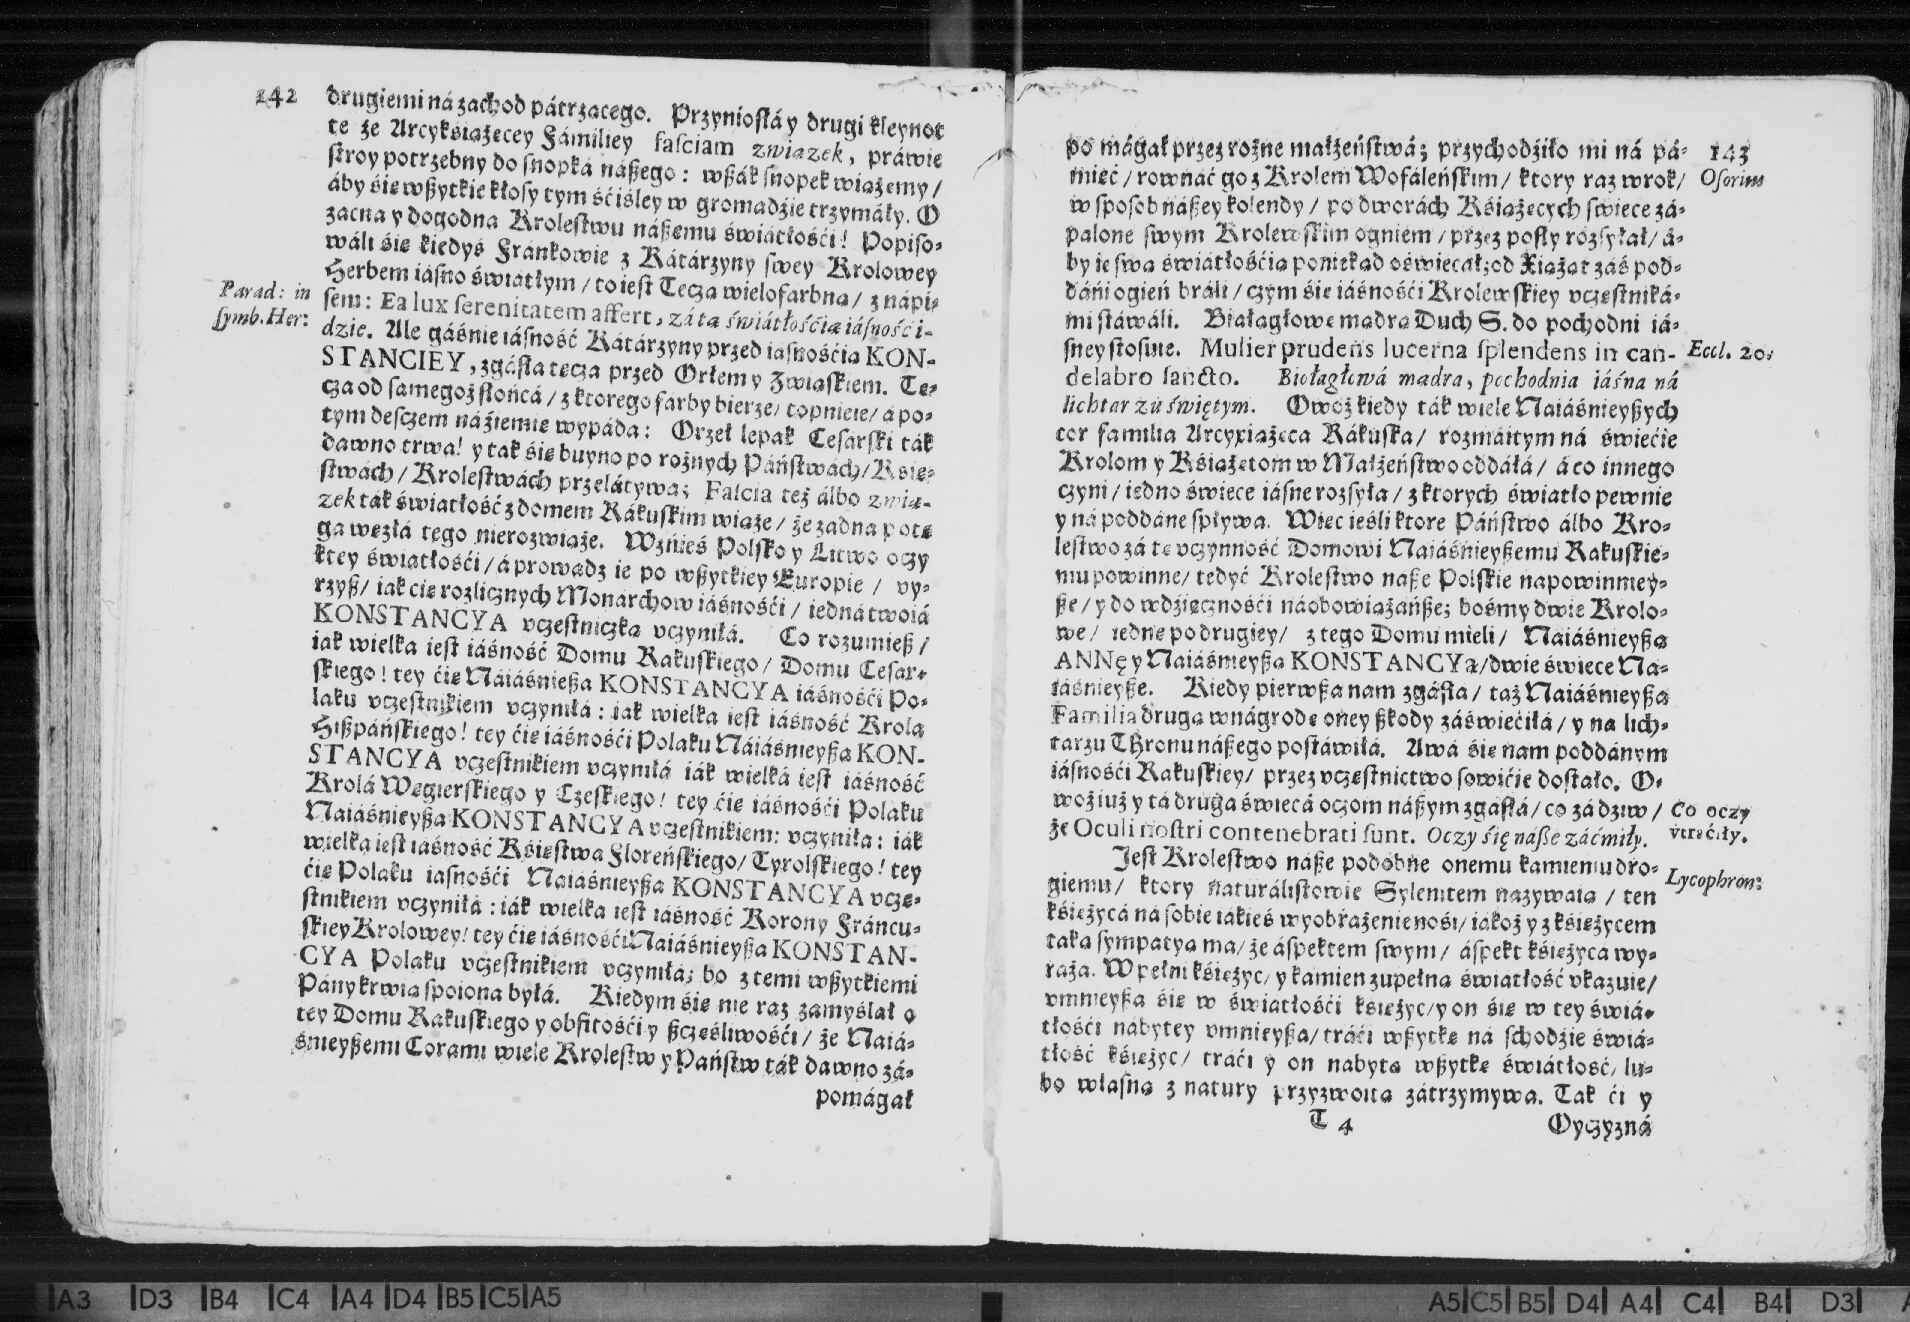 142
drugiemi ná zachod pátrzącego. Przyniosłá y drugi kleynot
te że Arcyksiążęcey Fámiliey fasciam związek, práwie
stroy potrzebny do snopká nászego: wszák snopek wiążemy /
áby się wszytkie kłosy tym śćiśley w gromádźie trzymáły. O
zacna y dogodna Krolestwu nászemu świátłośći! Popiso-
wáli się kiedyś Fránkowie z Kátárzyny swey Krolowey
Herbem iásno świátłym / to iest Tęczą wielofarbną / z nápi-
Parad: in
symb. Her:
sem: Ea lux serenitatem affert, zá tą świátłośćią iásność i-
dzie. Ale gáśnie iásność Kátárzyny przed iásnośćią KON-
STANCIEY, zgásłá tęcza przed Orłem y Zwiąskiem. Tę-
cza od samegoż słońcá / z ktorego farby bierze / topnieie / á po-
tym desczem ná źiemię wypáda: Orzeł lepak Cesarski ták
dawno trwa! y ták się buyno po rożnych Páństwách / Xię-
stwách / Krolestwách przelátywa; Fascia też álbo zwią-
zek ták świátłość z domem Rákuskim wiąże / że żadna potę
gá węzłá tego nierozwiąże. Wznieś Polsko y Litwo oczy
ktey świátłośći / á prowadź ie po wszytkiey Europie / vy-
rzysz / iák cię rozlicznych Monárchow iásnośći / iedná twoiá
KONSTANCYA vczestniczką vczyniłá. Co rozumiesz /
iák wielka iest iásność Domu Rakuskiego / Domu Cesar-
skiego! tey ćię Náiáśniesza KONSTANCYA iásnośći Po-
laku vczestnikiem vczyniłá: iák wielka iest iásność Krola
Hiszpáńskiego! tey ćię iásnośći Polaku Náiáśnieysza KON-
STANCYA vczestnikiem vczyniłá iák wielká iest iásność
Krolá Węgierskiego y Czeskiego! tey ćię iásnośći Polaku
Naiáśnieysza KONSTANCYA vczestnikiem: vczyniłá: iák
wielka iest iásność Księstwa Floreńskiego / Tyrolskiego! tey
ćię Polaku iasnośći Naiáśnieysza KONSTANCYA vcze-
stnikiem vczyniłá: iák wielka iest iásność Korony Fráncu-
skiey Krolowey! tey ćię iásnośći Naiáśnieysza KONSTAN-
CYA Polaku vczestnikiem vczyniłá; bo z temi wszytkiemi
Pány krwią spoiona byłá. Kiedym się nie raz zamyślał o
tey Domu Rakuskiego y obfitośći y szczęśliwośći / że Naiá-
śnieyszemi Coramı wiele Krolestw y Państw ták dawno zá-
pomágał
pomágał przez rożne małżeństwá; przychodźiło mi ná pá-
143
mięć / rownáć go z Krolem Wofáleńskim / ktory raz w rok /
Osorius
w sposob nászey kolendy / po dworách Książęcych świece zá-
palone swym Krolewskim ogniem / przez posły rozsyłał / á-
by ie swą świátłośćią poniekąd oświecał; od Xiążąt záś pod-
dáni ogień bráli / czym się iásnośći Krolewskiey vczestniká-
mi stáwáli. Białągłowę mądrą Duch S. do pochodni iá-
sney stosuie. Mulier prudens lucerna splendens in can-
Eccl. 20:
delabro sancto. Białagłowá mądra, pochodnia iáśna ná
lichtarzu świętym. Owoż kiedy ták wiele Naiáśnieyszych
cor familia Arcyxiążęca Rákuska / rozmáitym ná świećie
Krolom y Książętom w Małżeństwo oddáłá / á co innego
czyni / iedno świece iásne rozsyła / z ktorych świátło pewnie
y ná poddáne spływa. Więc ieśli ktore Páństwo álbo Kro-
lestwo zá tę vczynność Domowi Naiáśnieyszemu Rakuskie-
mu powinne / tedyć Krolestwo nasze Polskie napowinniey-
sze / y do wdźięcznośći náobowiązáńsze; bośmy dwie Krolo-
we / iednę po drugiey / z tego Domu mieli / Naiáśnieyszą
ANNę y Naiáśnieyszą KONSTANCYą / dwie świece Na-
iáśnieysze. Kiedy pierwsza nam zgásła / táż Naiáśnieysza
Familia drugą w nágrodę oney szkody záświećiłá / y na lich-
tarzu Thronu nászego postáwiłá. Awá się nam poddánym
iásnośći Rakuskiey / przez vczestnictwo sowićie dostało. O-
woż iuż y tá druga świecá oczom nászym zgásłá / co zá dźiw /
Co oczy
vtraćiły.
że Oculi nostri contenebrati sunt. Oczy się násze záćmiły.
Jest Krolestwo násze podobne onemu kamieniu dro-
Lycophron:
giemu / ktory naturálistowie Sylenitem nazywáią / ten
kśiężycá ná sobie iákieś wyobrażenie nośi / iákoż y z kśiężycem
taką sympatyą ma / że áspektem swym / áspekt kśiężyca wy-
raża. W pełni kśiężyc / y kamien zupełną świátłość vkazuie /
vmnieysza się w świátłośći kśiężyc / y on się w tey świá-
tłośći nábytey vmnieysza / tráći wszytkę ná schodźie świá-
tłość kśiężyc / tráći y on nabytą wszytkę świátłość / lu-
bo własną z natury przyzwoitą zátrzymywa. Tak ći y
T 4
Oyczyzná